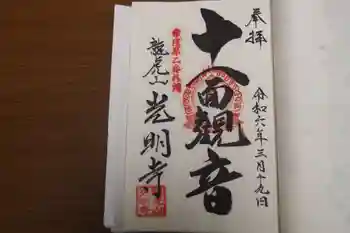 奉拝
令和六年三月十九日
十一面観音
龍虎山
光明寺